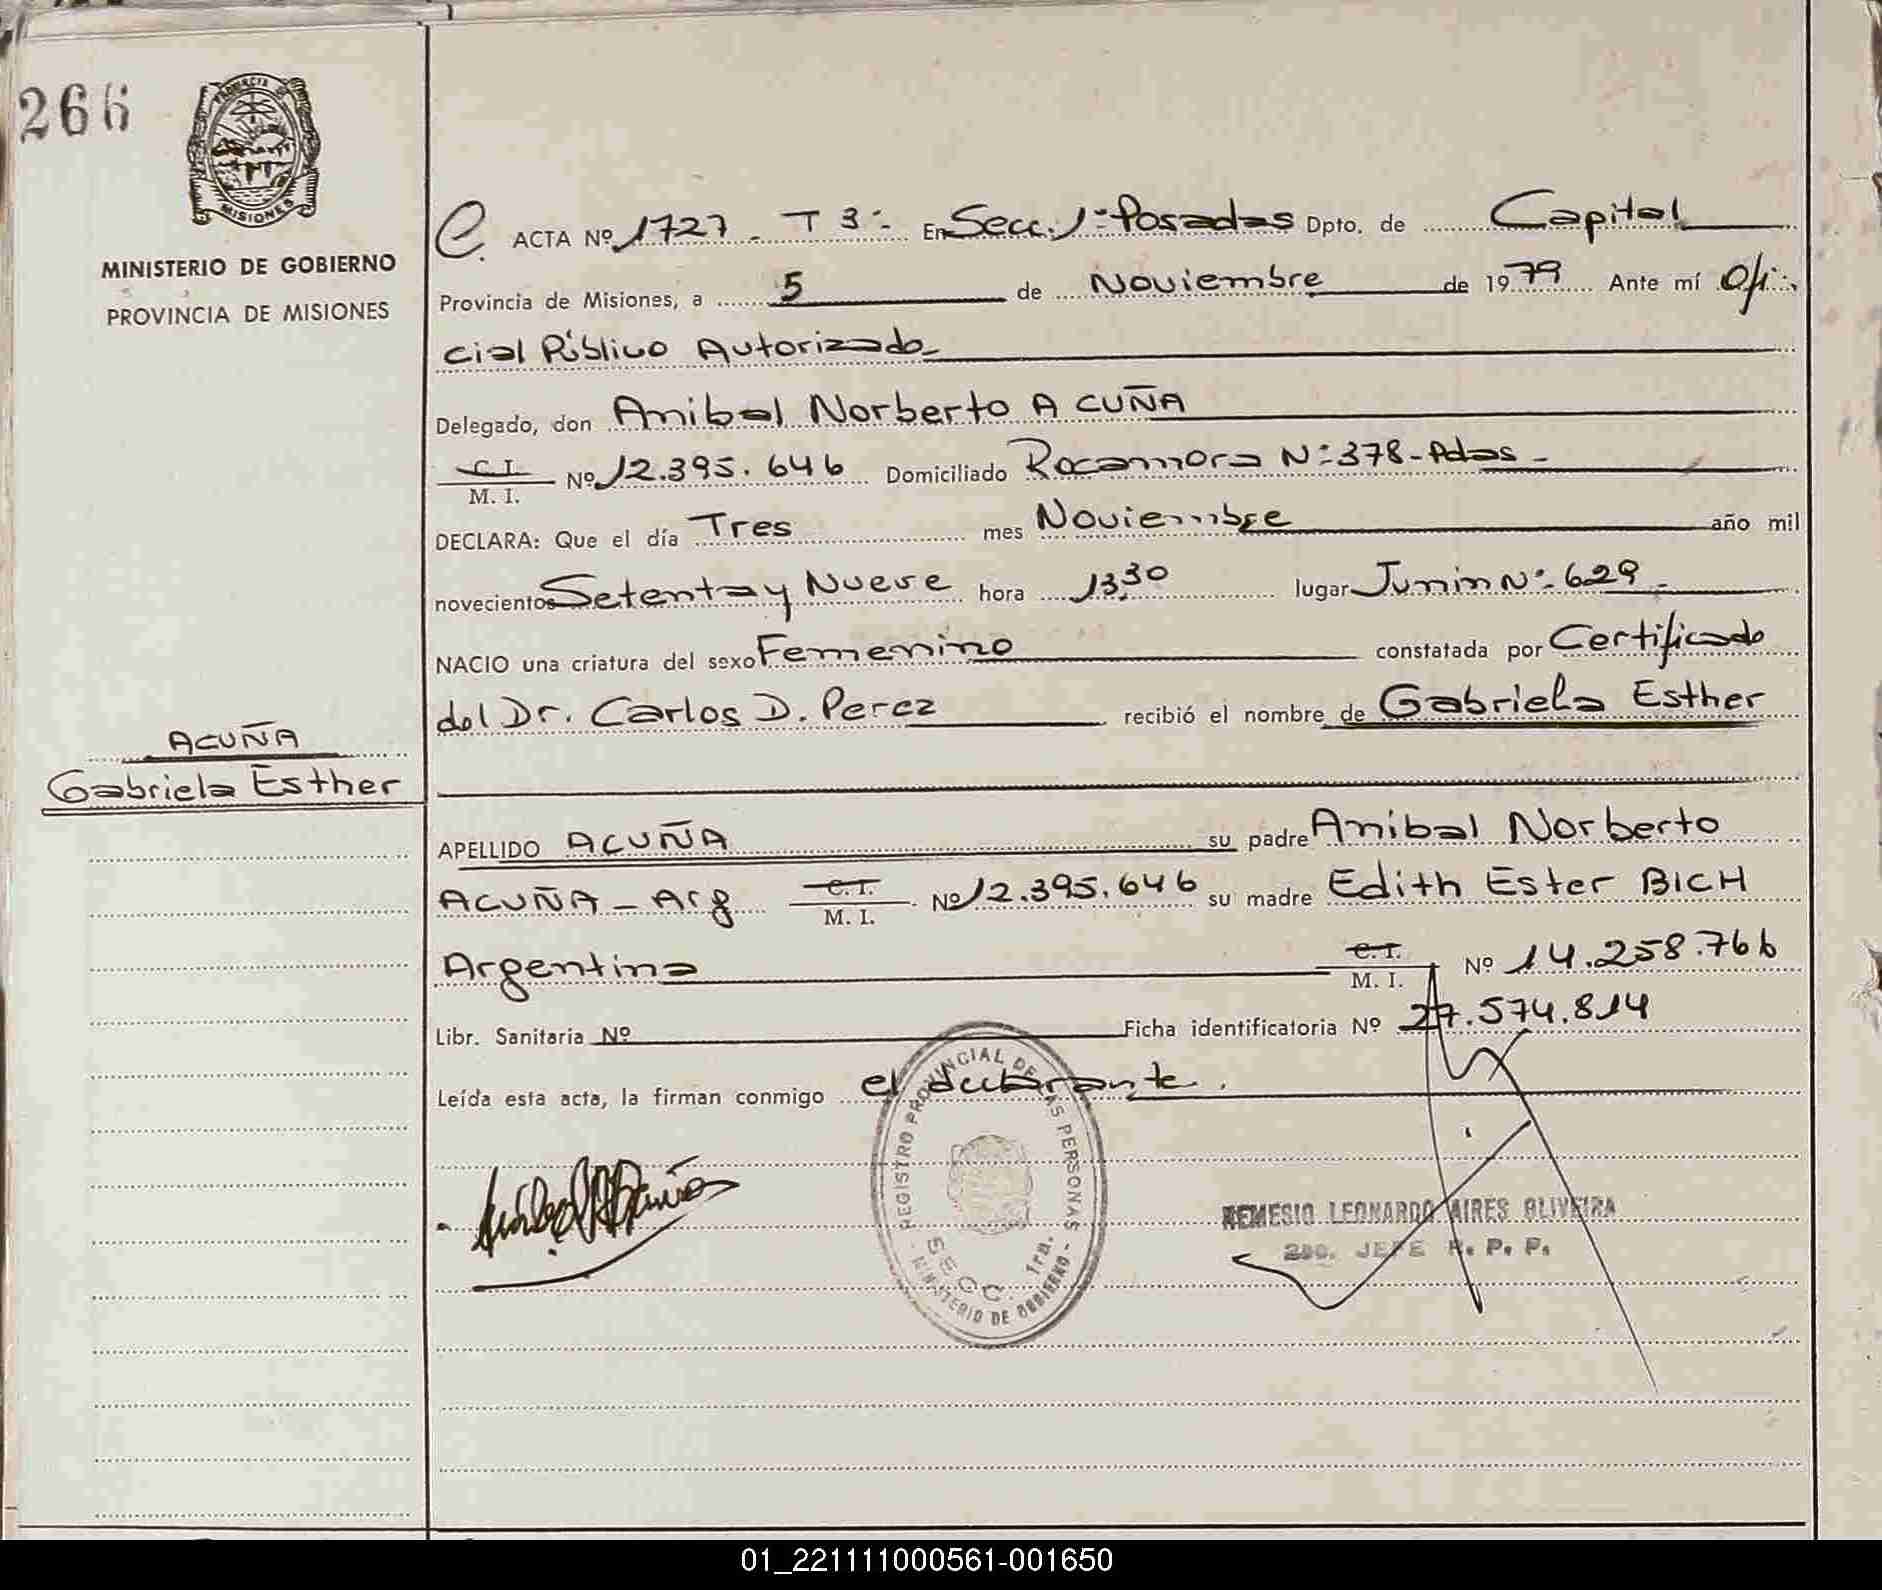 266
PROVINCIA DE
MISIONES
MINISTERIO DE GOBIERNO
PROVINCIA DE MISIONES
ACUÑA
Gabriela Esther
e. ACTA Nº 1727 - T 3º- En Secc. 1ª Posadas Dpto. de Capital
Provincia de Misiones, a 5 de Noviembre de 1979 Ante mí Ofi-
cial Público Autorizado-
Delegado, don Anibal Norberto ACUÑA
C. I.
M. I. Nº 12.395.646 Domiciliado Rocamora Nº 378-Pdas-
DECLARA: Que el día Tres mes Noviembre año mil
novecientos Setenta y Nueve hora 13,30 lugar Junin Nº- 629-
NACIO una criatura del sexo Femenino constatada por Certificado
del Dr. Carlos D. Perez recibió el nombre de Gabriela Esther
APELLIDO ACUÑA su padre Anibal Norberto
ACUÑA - Arg C. I.
M. I. Nº 12.395.646 su madre Edith Ester BICH
Argentina C. I.
M. I. Nº 14.258.766
Libr. Sanitaria Nº Ficha identificatoria Nº 27.574.814
Leída esta acta, la firman conmigo el declarante.
REGISTRO PROVINCIAL DE LAS PERSONAS
SECC. 1ra.
- MINISTERIO DE GOBIERNO -
REMESIO LEONARDO AIRES OLIVEIRA
2do. JEFE R. P. P.
01_221111000561-001650